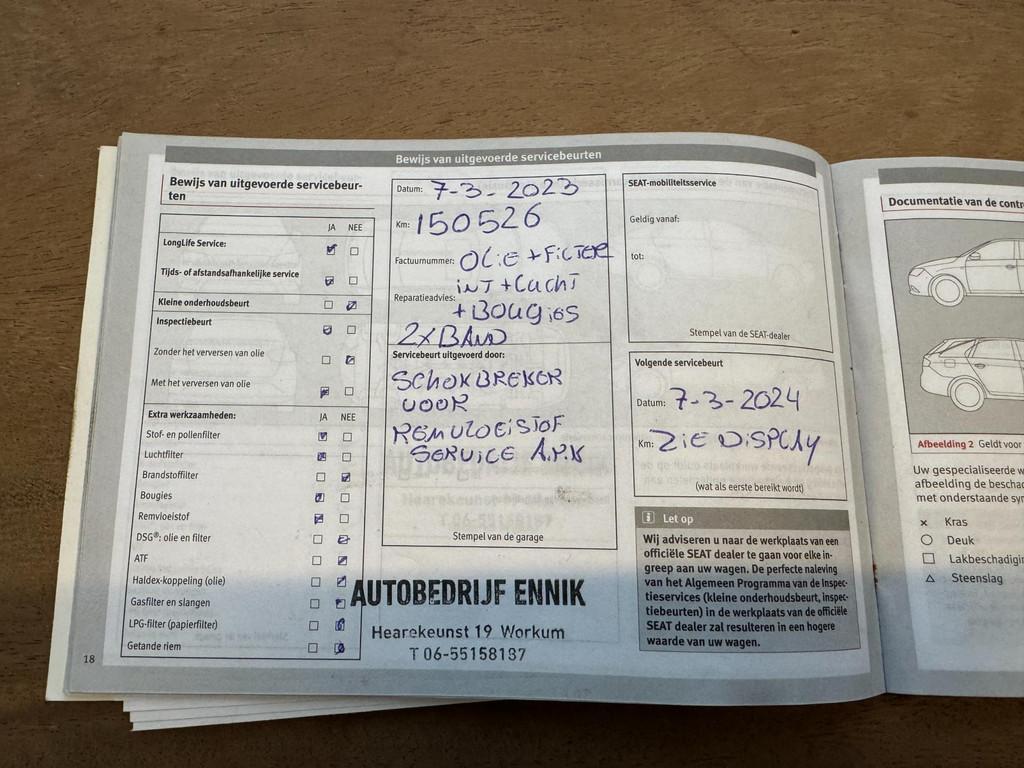 Bewijs van uitgevoerde servicebeurten
Bewijs van uitgevoerde servicebeur-
ten
JA NEE
LongLife Service:
Tijds- of afstandsafhankelijke service
Kleine onderhoudsbeurt
Inspectiebeurt
Zonder het verversen van olie
Met het verversen van olie
Extra werkzaamheden: JA NEE
Stof- en pollenfilter
Luchtfilter
Brandstoffilter
Bougies
Remvloeistof
DSG®: olie en filter
ATF
Haldex-koppeling (olie)
Gasfilter en slangen
LPG-filter (papierfilter)
Getande riem
18
Datum: 7-3-2023
Km: 150526
Factuurnummer: OLIE + FILTER
INT + LUCHT
Reparatieadvies:
+ BOUGIES
2X BAND
Servicebeurt uitgevoerd door:
SCHOKBREKER
VOOR
REMVLOEISTOF
SERVICE A.P.K
Stempel van de garage
AUTOBEDRIJF ENNIK
Hearekeunst 19 Workum
T 06-55158187
SEAT-mobiliteitsservice
Geldig vanaf:
tot:
Stempel van de SEAT-dealer
Volgende servicebeurt
Datum: 7-3-2024
Km: ZIE DISPLAY
(wat als eerste bereikt wordt)
Let op
Wij adviseren u naar de werkplaats van een
officiële SEAT dealer te gaan voor elke in-
greep aan uw wagen. De perfecte naleving
van het Algemeen Programma van de Inspec-
tieservices (kleine onderhoudsbeurt, inspec-
tiebeurten) in de werkplaats van de officiële
SEAT dealer zal resulteren in een hogere
waarde van uw wagen.
Documentatie van de contr
Afbeelding 2 Geldt voor
Uw gespecialiseerde w
afbeelding de bescha
met onderstaande syr
x Kras
○ Deuk
□ Lakbeschadigi
△ Steenslag